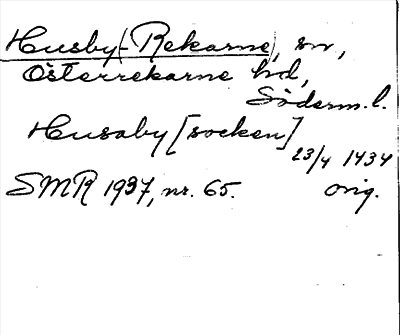 Husby(-Rekarne), sn,
Österrekarne hd,
Söderm. l.
Husaby [socken]
23/4 1434
SMR 1937, nr. 65. orig.